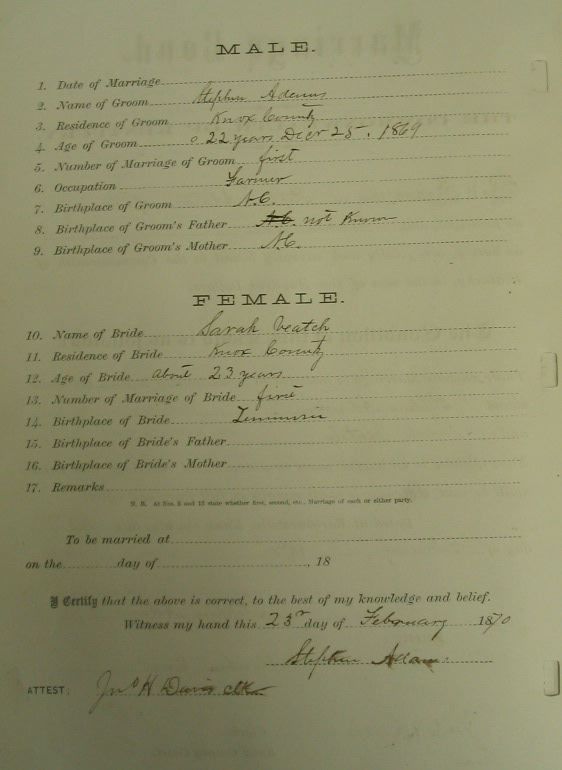 MALE.
1. Date of Marriage
2. Name of Groom Stephen Adams
3. Residence of Groom Knox County
4. Age of Groom 22 years Decr 25, 1869
5. Number of Marriage of Groom first
6. Occupation Farmer
7. Birthplace of Groom N.C.
8. Birthplace of Groom's Father N.C. not Known
9. Birthplace of Groom's Mother N.C.
FEMALE.
10. Name of Bride Sarah Veatch
11. Residence of Bride Knox County
12. Age of Bride About 23 years
13. Number of Marriage of Bride first
14. Birthplace of Bride Tennessee
15. Birthplace of Bride's Father
16. Birthplace of Bride's Mother
17. Remarks
N. B. At Nos. 5 and 13 state whether first, second, etc., Marriage of each or either party.
To be married at
on the day of , 18
I Certify that the above is correct, to the best of my knowledge and belief.
Witness my hand this 23r day of February 1870
Stephen Adams
ATTEST: Jno H Davis clk